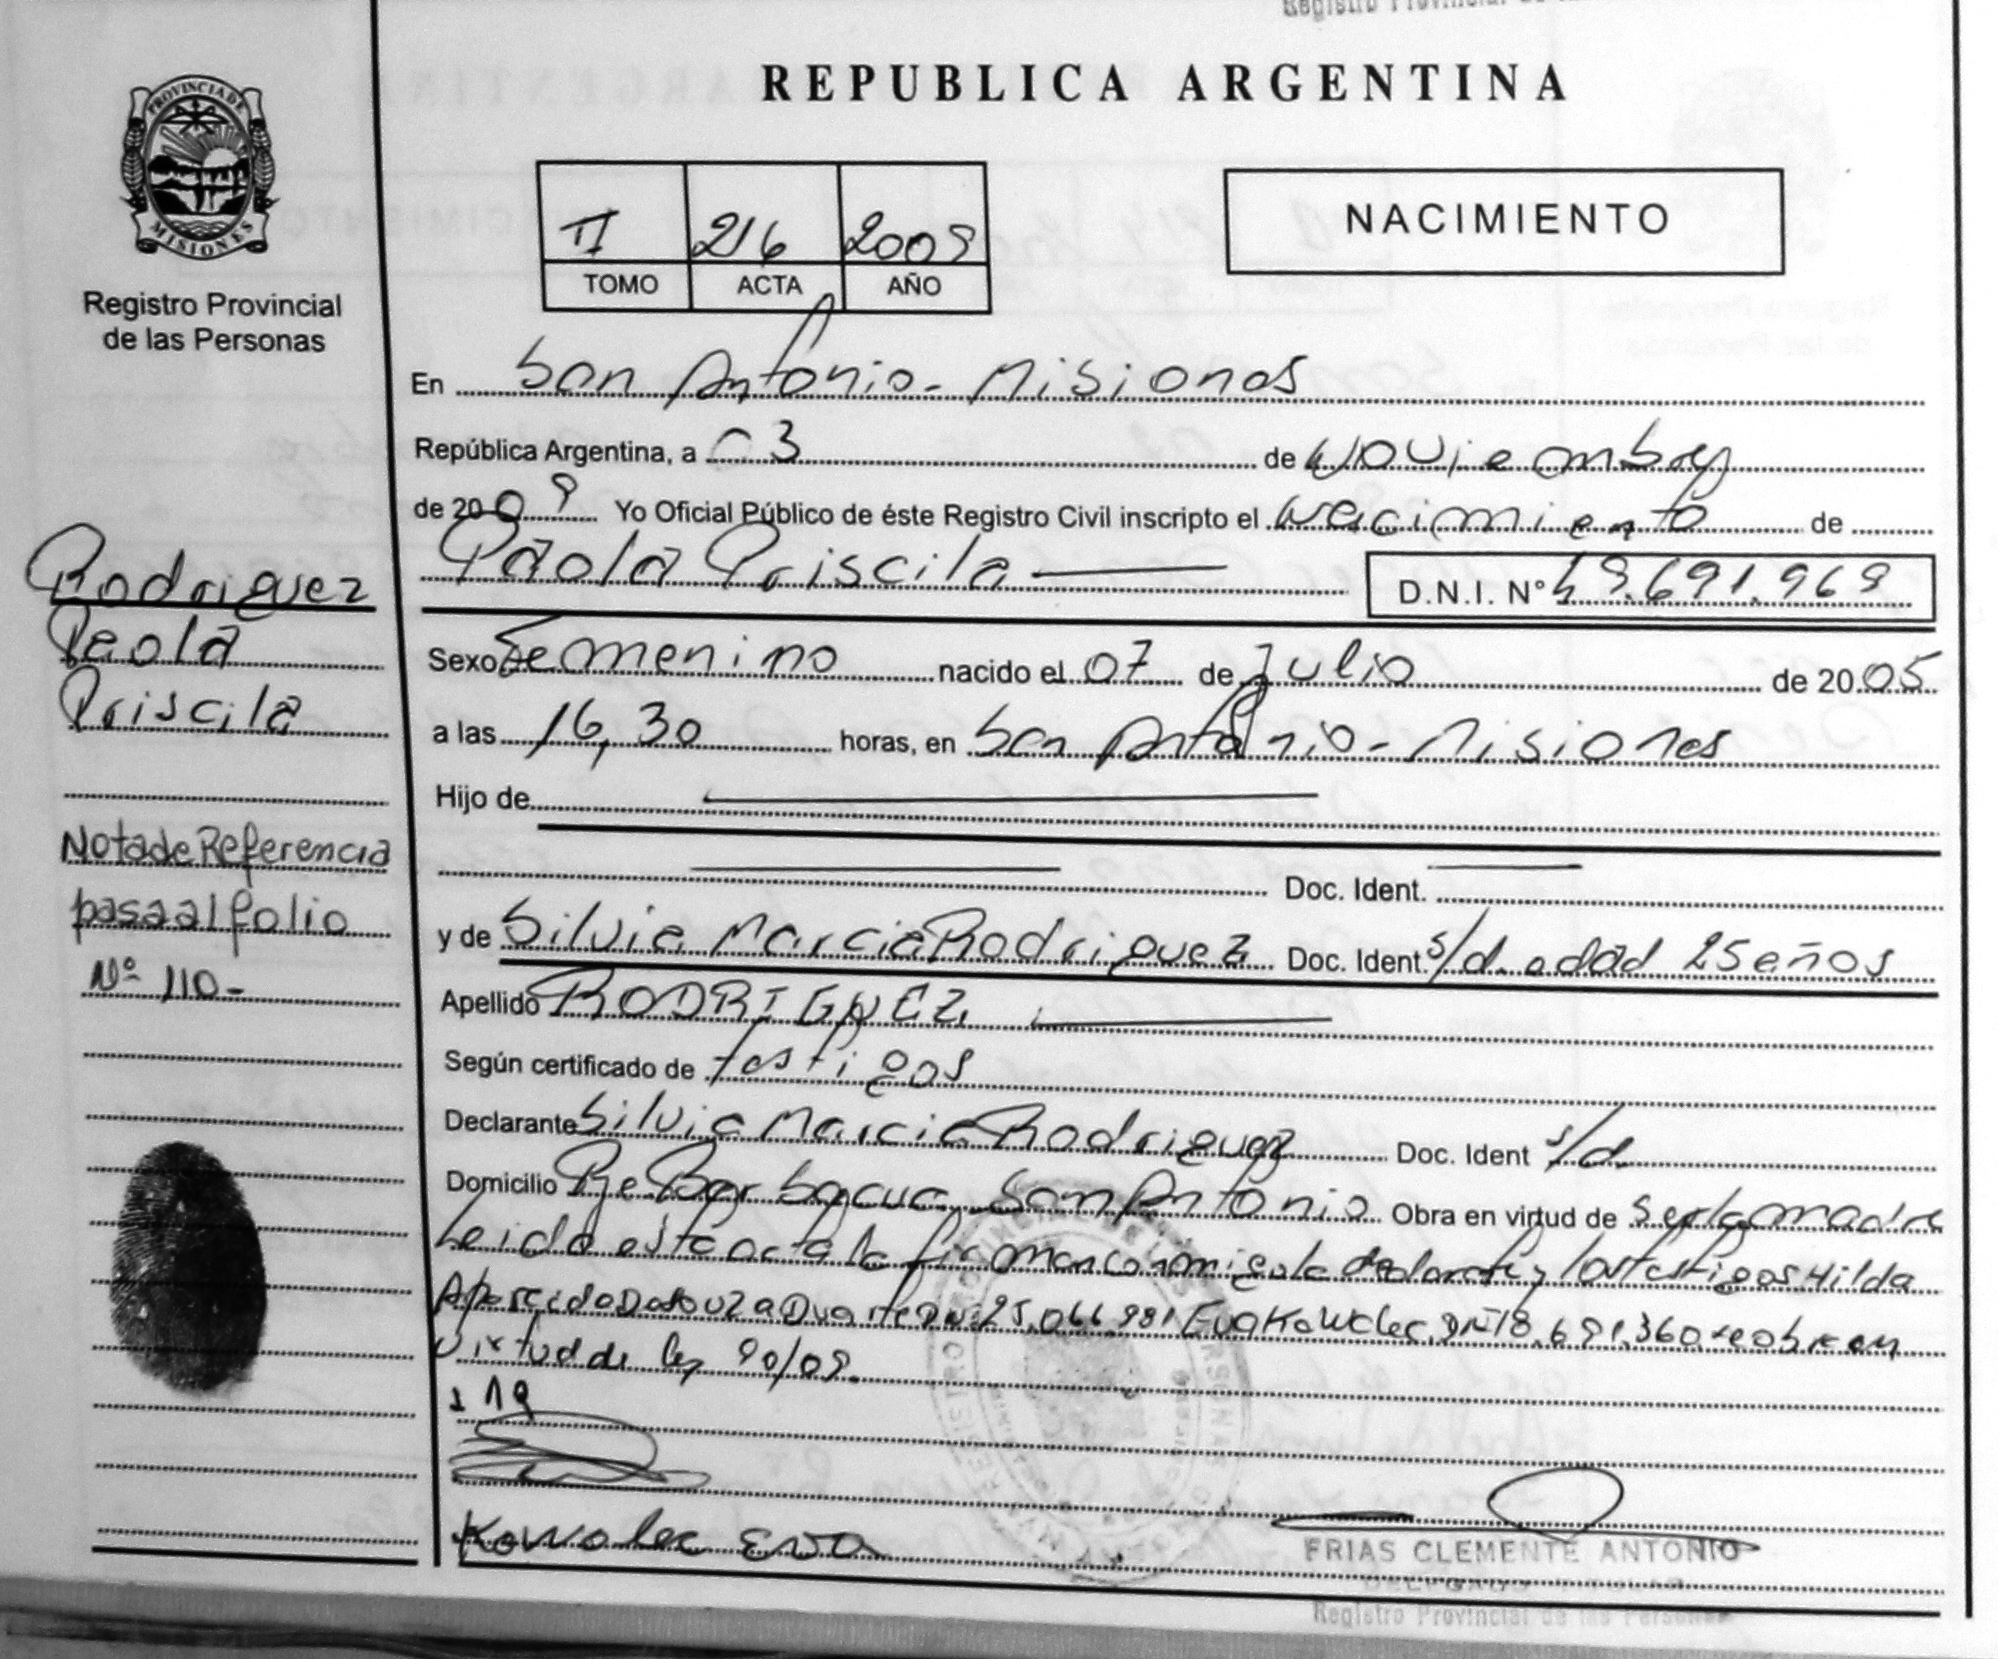 Registro Provincial de las
REPUBLICA ARGENTINA
PROVINCIA DE
MISIONES
Registro Provincial
de las Personas
II 216 2009
TOMO ACTA AÑO
NACIMIENTO
En San Antonio - Misiones
República Argentina, a 03 de Noviembre
de 2009 Yo Oficial Público de éste Registro Civil inscripto el Nacimiento de
Paola Priscila D.N.I. Nº 49.691.969
Rodriguez
Paola
Priscila
Sexo Femenino nacido el 07 de Julio de 2005
a las 16,30 horas, en San Antonio - Misiones
Hijo de
Doc. Ident.
Nota de Referencia
pasa al folio
Nº 110-
y de Silvia Marcia Rodriguez Doc. Ident. s/d. edad 25 años
Apellido RODRIGUEZ
Según certificado de testigos
Declarante Silvia Marcia Rodriguez Doc. Ident s/d.
Domicilio Barbacua San Antonio Obra en virtud de ser la madre
Leida esta acta la firman conmigo la declarante y los testigos Hilda
Aparecida Dasouza Duarte DNI 25.066.981 Eva Kowalec DNI 18.691.360 se obra en
virtud de ley 90/09.
Kowalec Eva
FRIAS CLEMENTE ANTONIO
Registro Provincial de las Personas